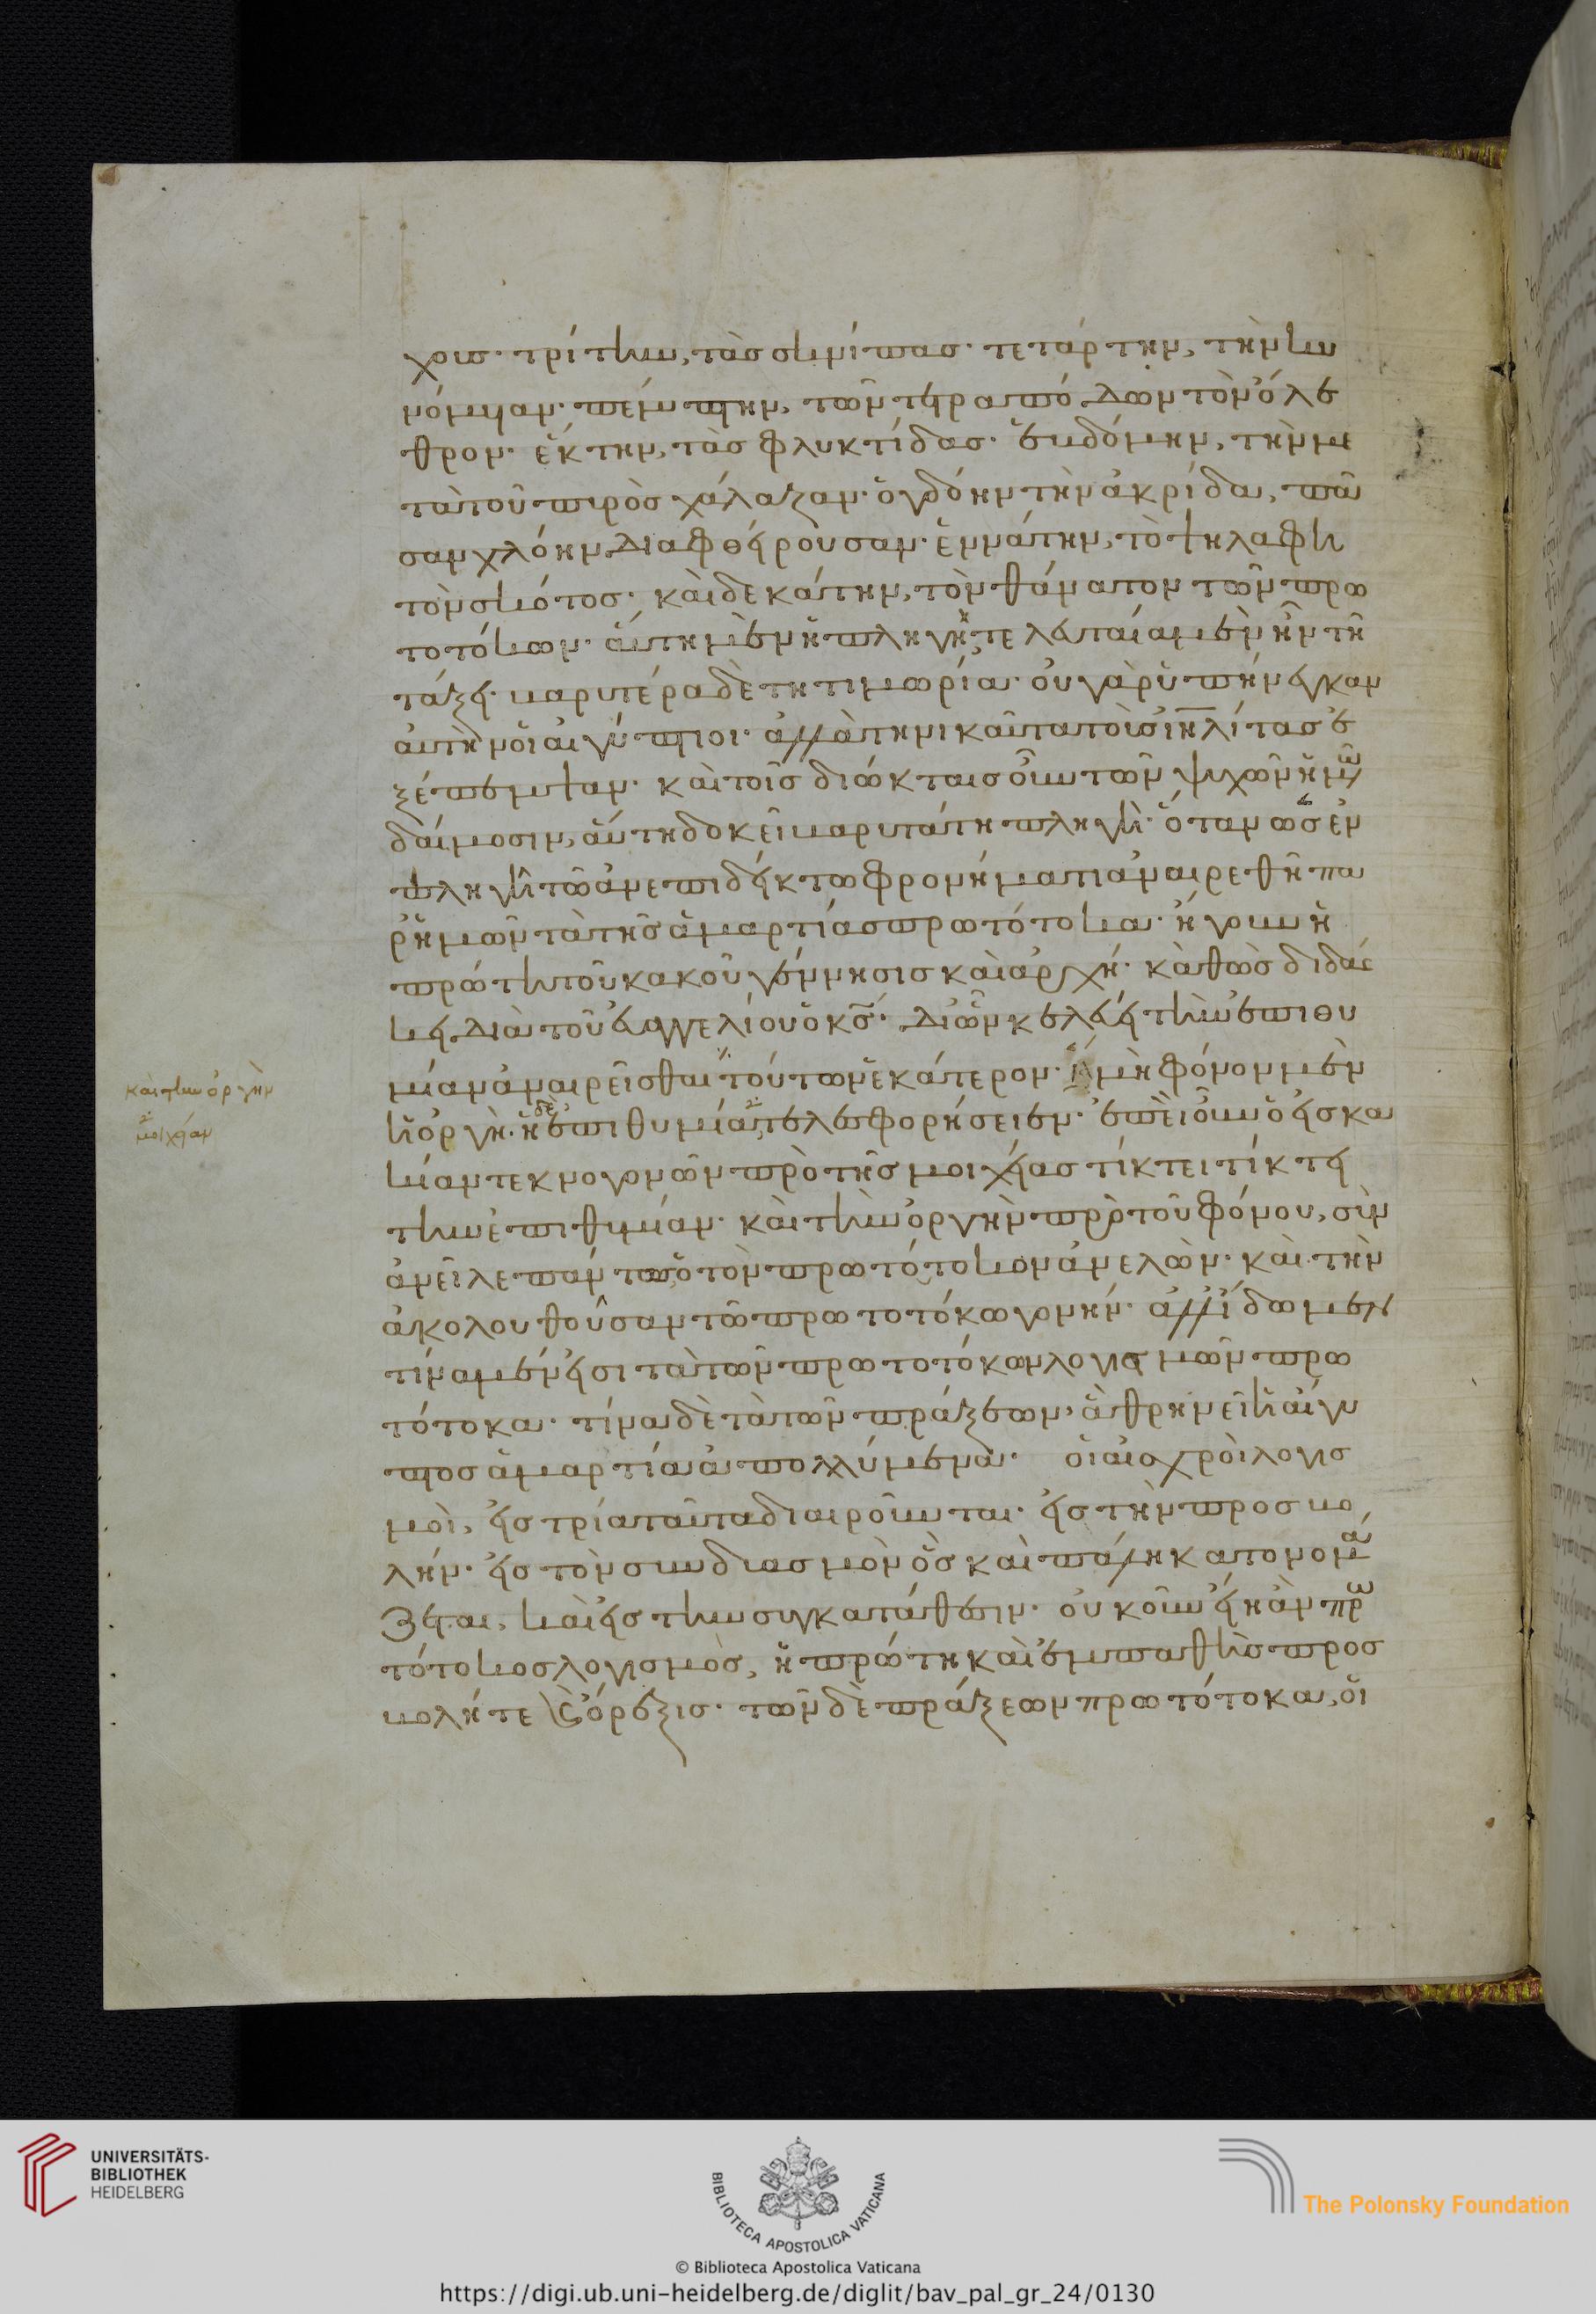 χους· τρίτην, τὰς σκνίπας· τετάρτην, τὴν κυ
νόμυιαν· πέμπτην, τῶν τετραπόδων τὸν ὄλε
θρον· ἕκτην, τὰς φλυκτίδας· ἑβδόμην, τὴν με
τὰ τοῦ πυρὸς χάλαζαν· ὀγδόην τὴν ἀκρίδα, πᾶ
σαν χλόην διαφθείρουσαν· ἐννάτην, τὸ ψηλαφη
τὸν σκότος· καὶ δεκάτην, τὸν θάνατον τῶν πρω
τοτόκων· αὕτη μὲν ἡ πληγὴ, τελευταία μὲν ἦν τῇ
τάξει· βαρυτέρα δὲ τῇ τιμωρία· οὐ γὰρ ὑπήνεγκαν
αὐτὴν οἱ αἰγύπτιοι· ἀλλὰ τηνικαῦτα τοὺς ἰηλίτας ἐ
ξέπεμψαν· καὶ τοῖς διώκταις οὖν τῶν ψυχῶν ἡμῶν
δαίμοσιν, αὕτη δοκεῖ βαρυτάτη πληγὴ· ὅταν ὡς ἐν
πληγῇ τῶ ἀνεπιδέκτω φρονήματι ἀναιρεθῇ πα
ρ' ἡμῶν τὰ τῆς ἁμαρτίας πρωτότοκα· ἤγουν ἡ
πρώτη τοῦ κακοῦ γέννησις καὶ ἀρχή· καθὼς διδάσ
κει διὰ τοῦ εὐαγγελίου ὁ κς· δι' ὧν κελεύει τὴν ἐπιθυ
καὶ τὴν ὀργὴν
μίαν ἀναιρεῖσθαι τούτων ἑκάτερον· ἵνα μὴ φόνον μὲν
μοιχείαν
ἡ ὀργὴ· ἡ δὲ ἐπιθυμία τελεσφορήσειεν· ἐπεὶ οὖν ὁ εἰς κα
κίαν τεκνογονῶν πρὸ τῆς μοιχείας τίκτει τίκτει
τὴν ἐπιθυμίαν· καὶ τὴν ὀργὴν πρὸ τοῦ φόνου, συν
ἀνεῖλε πάντως ὁ τὸν πρωτότοκον ἀνελὼν· καὶ τὴν
ἀκολουθοῦσαν τῶ πρωτοτόκω γονήν· ἀλλ' ἴδωμεν
τίνα μέν εἰσι τὰ τῶν πρωτοτόκων λογισμῶν πρω
τότοκα· τίνα δὲ τὰ τῶν πράξεων· ἃ θρηνεῖ ἡ αἴγυ
πτος ἁμαρτία ἀπολλύμενα· οἱ αἰσχροὶ λογισ
μοὶ, εἰς τρία ταῦτα διαιροῦνται· εἰς τὴν προσβο
λήν· εἰς τὸν συνδιασμὸν ὃς καὶ πάλη κατονομά
ζεται, καὶ εἰς τὴν συγκατάθεσιν· οὐκοῦν εἴη ἂν πρω
τότοκος λογισμὸς, ἡ πρώτη καὶ ἐμπαθὴς προσ
βολή τε καὶ ὄρεξις· τῶν δὲ πράξεων πρωτότοκα, οἱ
UNIVERSITÄTS-
BIBLIOTHEK
HEIDELBERG
BIBLIOTECA APOSTOLICA VATICANA
The Polonsky Foundation
© Biblioteca Apostolica Vaticana
https://digi.ub.uni-heidelberg.de/diglit/bav_pal_gr_24/0130